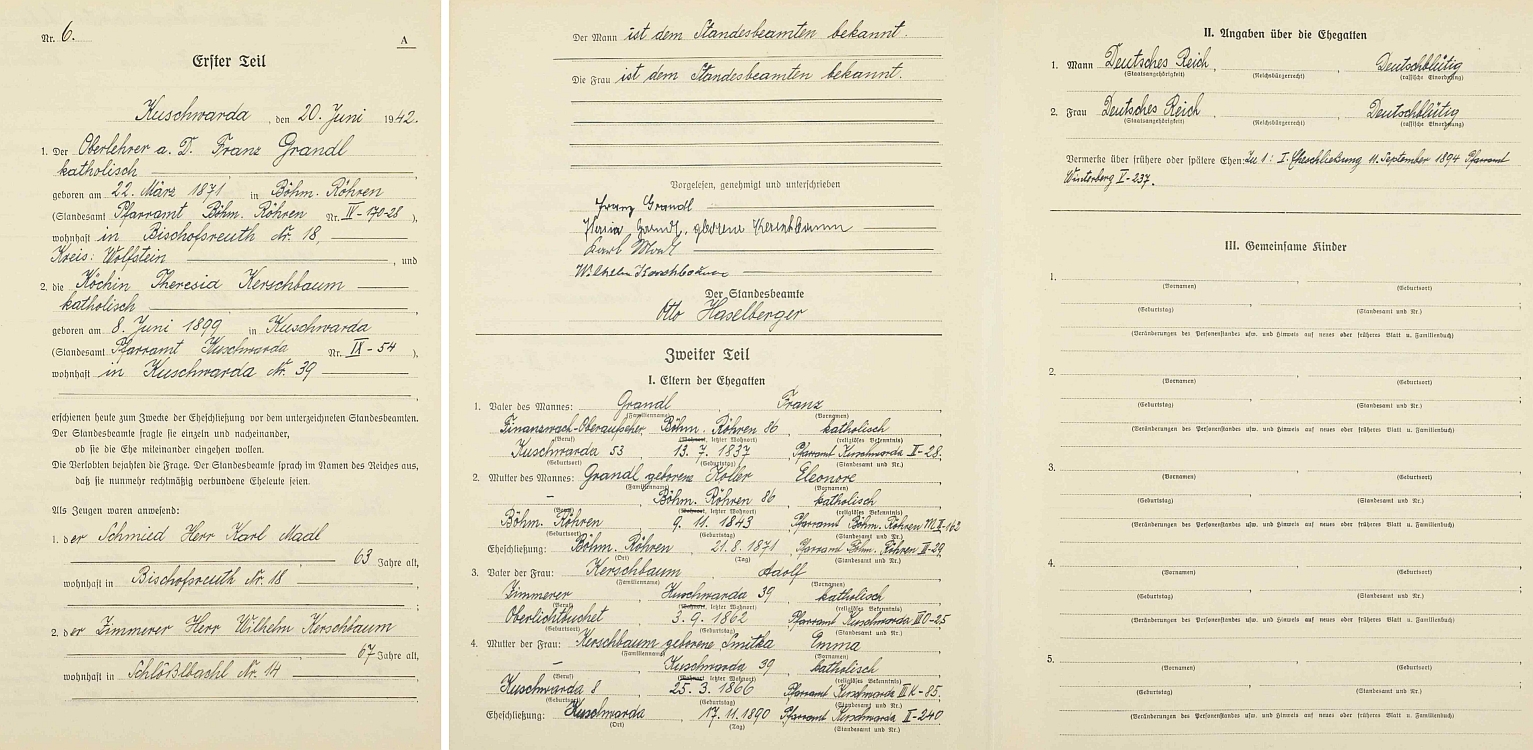 Nr. 6.
A
Erster Teil
Kuschwarda, den 20. Juni 1942.
1. Der Oberlehrer a. D. Franz Grandl
katholisch
geboren am 22. März 1871 in Böhm. Röhren
(Standesamt Pfarramt Böhm. Röhren Nr. IV-170-28),
wohnhaft in Bischofsreuth Nr. 18,
Kreis: Wolfstein, und
2. die Köchin Theresia Kerschbaum
katholisch
geboren am 8. Juni 1899 in Kuschwarda
(Standesamt Pfarramt Kuschwarda Nr. IX-54),
wohnhaft in Kuschwarda Nr. 39
erschienen heute zum Zwecke der Eheschließung vor dem unterzeichneten Standesbeamten.
Der Standesbeamte fragte sie einzeln und nacheinander,
ob sie die Ehe miteinander eingehen wollen.
Die Verlobten bejahten die Frage. Der Standesbeamte sprach im Namen des Reiches aus,
daß sie nunmehr rechtmäßig verbundene Eheleute seien.
Als Zeugen waren anwesend:
1. der Schmied Herr Karl Madl
63 Jahre alt,
wohnhaft in Bischofsreuth Nr. 18
;
2. der Zimmerer Herr Wilhelm Kerschbaum
67 Jahre alt,
wohnhaft in Schlößlbachl Nr. 14
Der Mann ist dem Standesbeamten bekannt.
Die Frau ist dem Standesbeamten bekannt.
Vorgelesen, genehmigt und unterschrieben
Franz Grandl
Grandl, geborene Kerschbaum
Karl Madl
Wilhelm Kerschbaum
Der Standesbeamte
Otto Haselberger
Zweiter Teil
I. Eltern der Ehegatten
1. Vater des Mannes: Grandl, Franz
(Familienname) (Vornamen)
Finanzwach-Oberaufseher, Böhm. Röhren 86, katholisch
(Beruf) (Wohnort, letzter Wohnort) (religiöses Bekenntnis)
Kuschwarda 53 13. 7. 1837 Pfarramt Kuschwarda II-28.
(Geburtsort) (Geburtstag) (Standesamt und Nr.)
2. Mutter des Mannes: Grandl geborene Koller Eleonore
(Familienname) (Vornamen)
– Böhm. Röhren 86 katholisch
(Beruf) (Wohnort, letzter Wohnort) (religiöses Bekenntnis)
Böhm. Röhren 9. 11. 1843 Pfarramt Böhm. Röhren
(Geburtsort) (Geburtstag) (Standesamt und Nr.)
Eheschließung: Böhm. Röhren, 21. 8. 1871 Pfarramt Böhm. Röhren II-29
(Ort) (Tag) (Standesamt und Nr.)
3. Vater der Frau: Kerschbaum, Adolf
(Familienname) (Vornamen)
Zimmerer, Kuschwarda 39, katholisch
(Beruf) (Wohnort, letzter Wohnort) (religiöses Bekenntnis)
Oberlichtbuchet 3. 9. 1862 Pfarramt Kuschwarda
(Geburtsort) (Geburtstag) (Standesamt und Nr.)
4. Mutter der Frau: Kerschbaum geborene Smitka Emma
(Familienname) (Vornamen)
– Kuschwarda 39 katholisch
(Beruf) (Wohnort, letzter Wohnort) (religiöses Bekenntnis)
Kuschwarda 8, 25. 3. 1866 Pfarramt Kuschwarda
(Geburtsort) (Geburtstag) (Standesamt und Nr.)
Eheschließung: Kuschwarda, 17. 11. 1890 Pfarramt Kuschwarda II-240
(Ort) (Tag) (Standesamt und Nr.)
II. Angaben über die Ehegatten
1. Mann Deutsches Reich, Deutschblütig
(Staatsangehörigkeit) (Reichsbürgerrecht) (rassische Einordnung)
2. Frau Deutsches Reich, Deutschblütig
(Staatsangehörigkeit) (Reichsbürgerrecht) (rassische Einordnung)
Vermerke über frühere oder spätere Ehen: Zu 1: I. Eheschließung 11. September 1894 Pfarramt
Winterberg V-237.
III. Gemeinsame Kinder
1.
(Vornamen) (Geburtsort)
(Geburtstag) (Standesamt und Nr.)
(Veränderungen des Personenstandes usw. und Hinweis auf neues oder früheres Blatt u. Familienbuch)
2.
(Vornamen) (Geburtsort)
(Geburtstag) (Standesamt und Nr.)
(Veränderungen des Personenstandes usw. und Hinweis auf neues oder früheres Blatt u. Familienbuch)
3.
(Vornamen) (Geburtsort)
(Geburtstag) (Standesamt und Nr.)
(Veränderungen des Personenstandes usw. und Hinweis auf neues oder früheres Blatt u. Familienbuch)
4.
(Vornamen) (Geburtsort)
(Geburtstag) (Standesamt und Nr.)
(Veränderungen des Personenstandes usw. und Hinweis auf neues oder früheres Blatt u. Familienbuch)
5.
(Vornamen) (Geburtsort)
(Geburtstag) (Standesamt und Nr.)
(Veränderungen des Personenstandes usw. und Hinweis auf neues oder früheres Blatt u. Familienbuch)